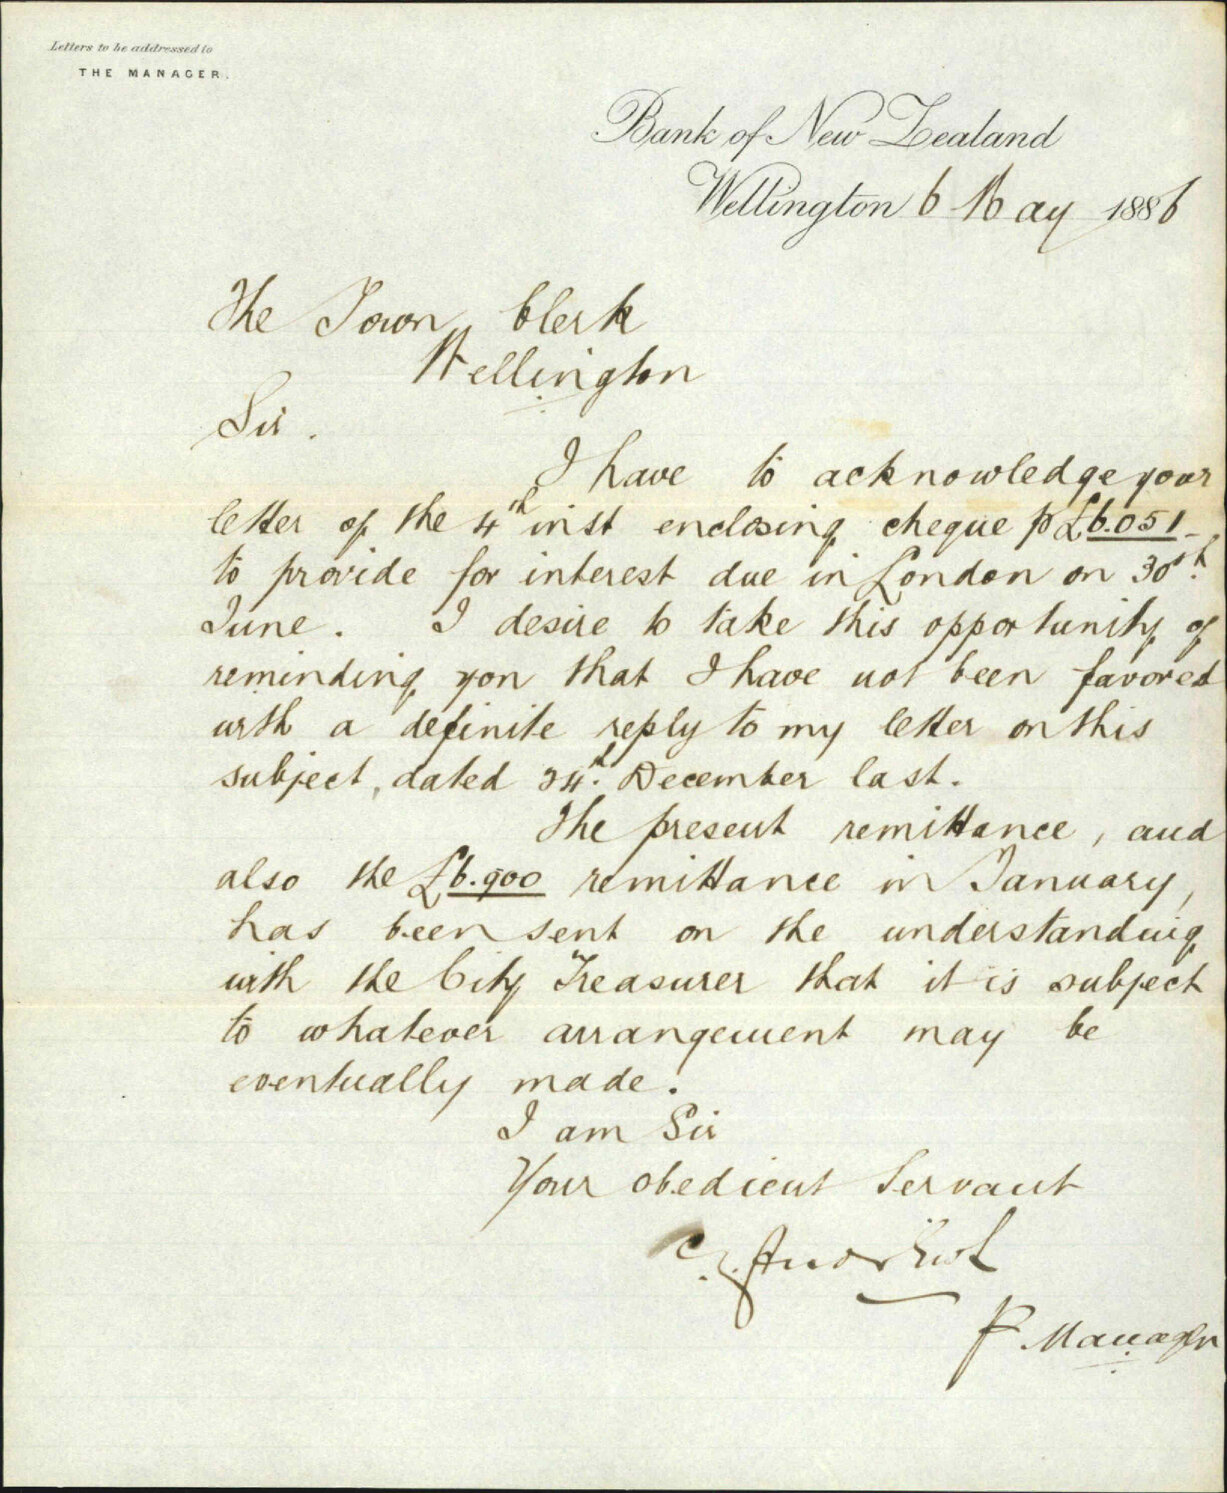 Letters to be addressed to
THE MANAGER.
Bank of New Zealand
Wellington 6 May 1886
The Town Clerk
Wellington
Sir.
I have to acknowledge your
letter of the 4th inst enclosing cheque p £6.051_
to provide for interest due in London on 30th.
June. I desire to take this opportunity of
reminding you that I have not been favored
with a definite reply to my letter on this
subject, dated 24th. December last.
The present remittance, and
also the £6.900 remittance in January,
has been sent on the understanding
with the City Treasurer that it is subject
to whatever arrangement may be
eventually made.
I am Sir
Your obedient Servant
P Manager